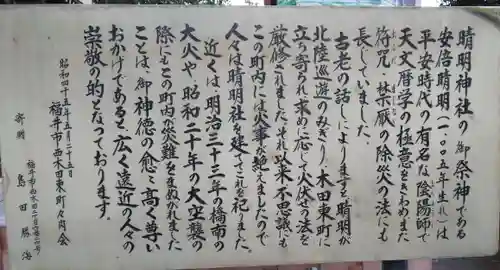 晴明神社の御祭神である
安倍晴明(一、〇〇五年生れ)は
平安時代の有名な陰陽師で
天文暦学の極意をきわめまた
符咒・禁厭の除災の法にも
長じていました。
古老の話しによりますと晴明が
北陸巡遊のみぎり、木田東町に
立ち寄られ求めに応じ火伏せの法を
厳修されました。それ以来不思議にも
この町内には火事が絶えてましたので
人々は晴明社を建てこれを祀りました。
近くは、明治三十三年の橋南の
大火や、昭和二十年の大空襲の
際にもこの町内が災難をまぬがれました
ことは、御神徳の愈々高く尊い
おかげであると広く遠近の人々の
崇敬の的となっております。
昭和四十五年五月二十五日
福井市西木田東町々内会
福井市西木田二丁目
寄贈 島田勝海